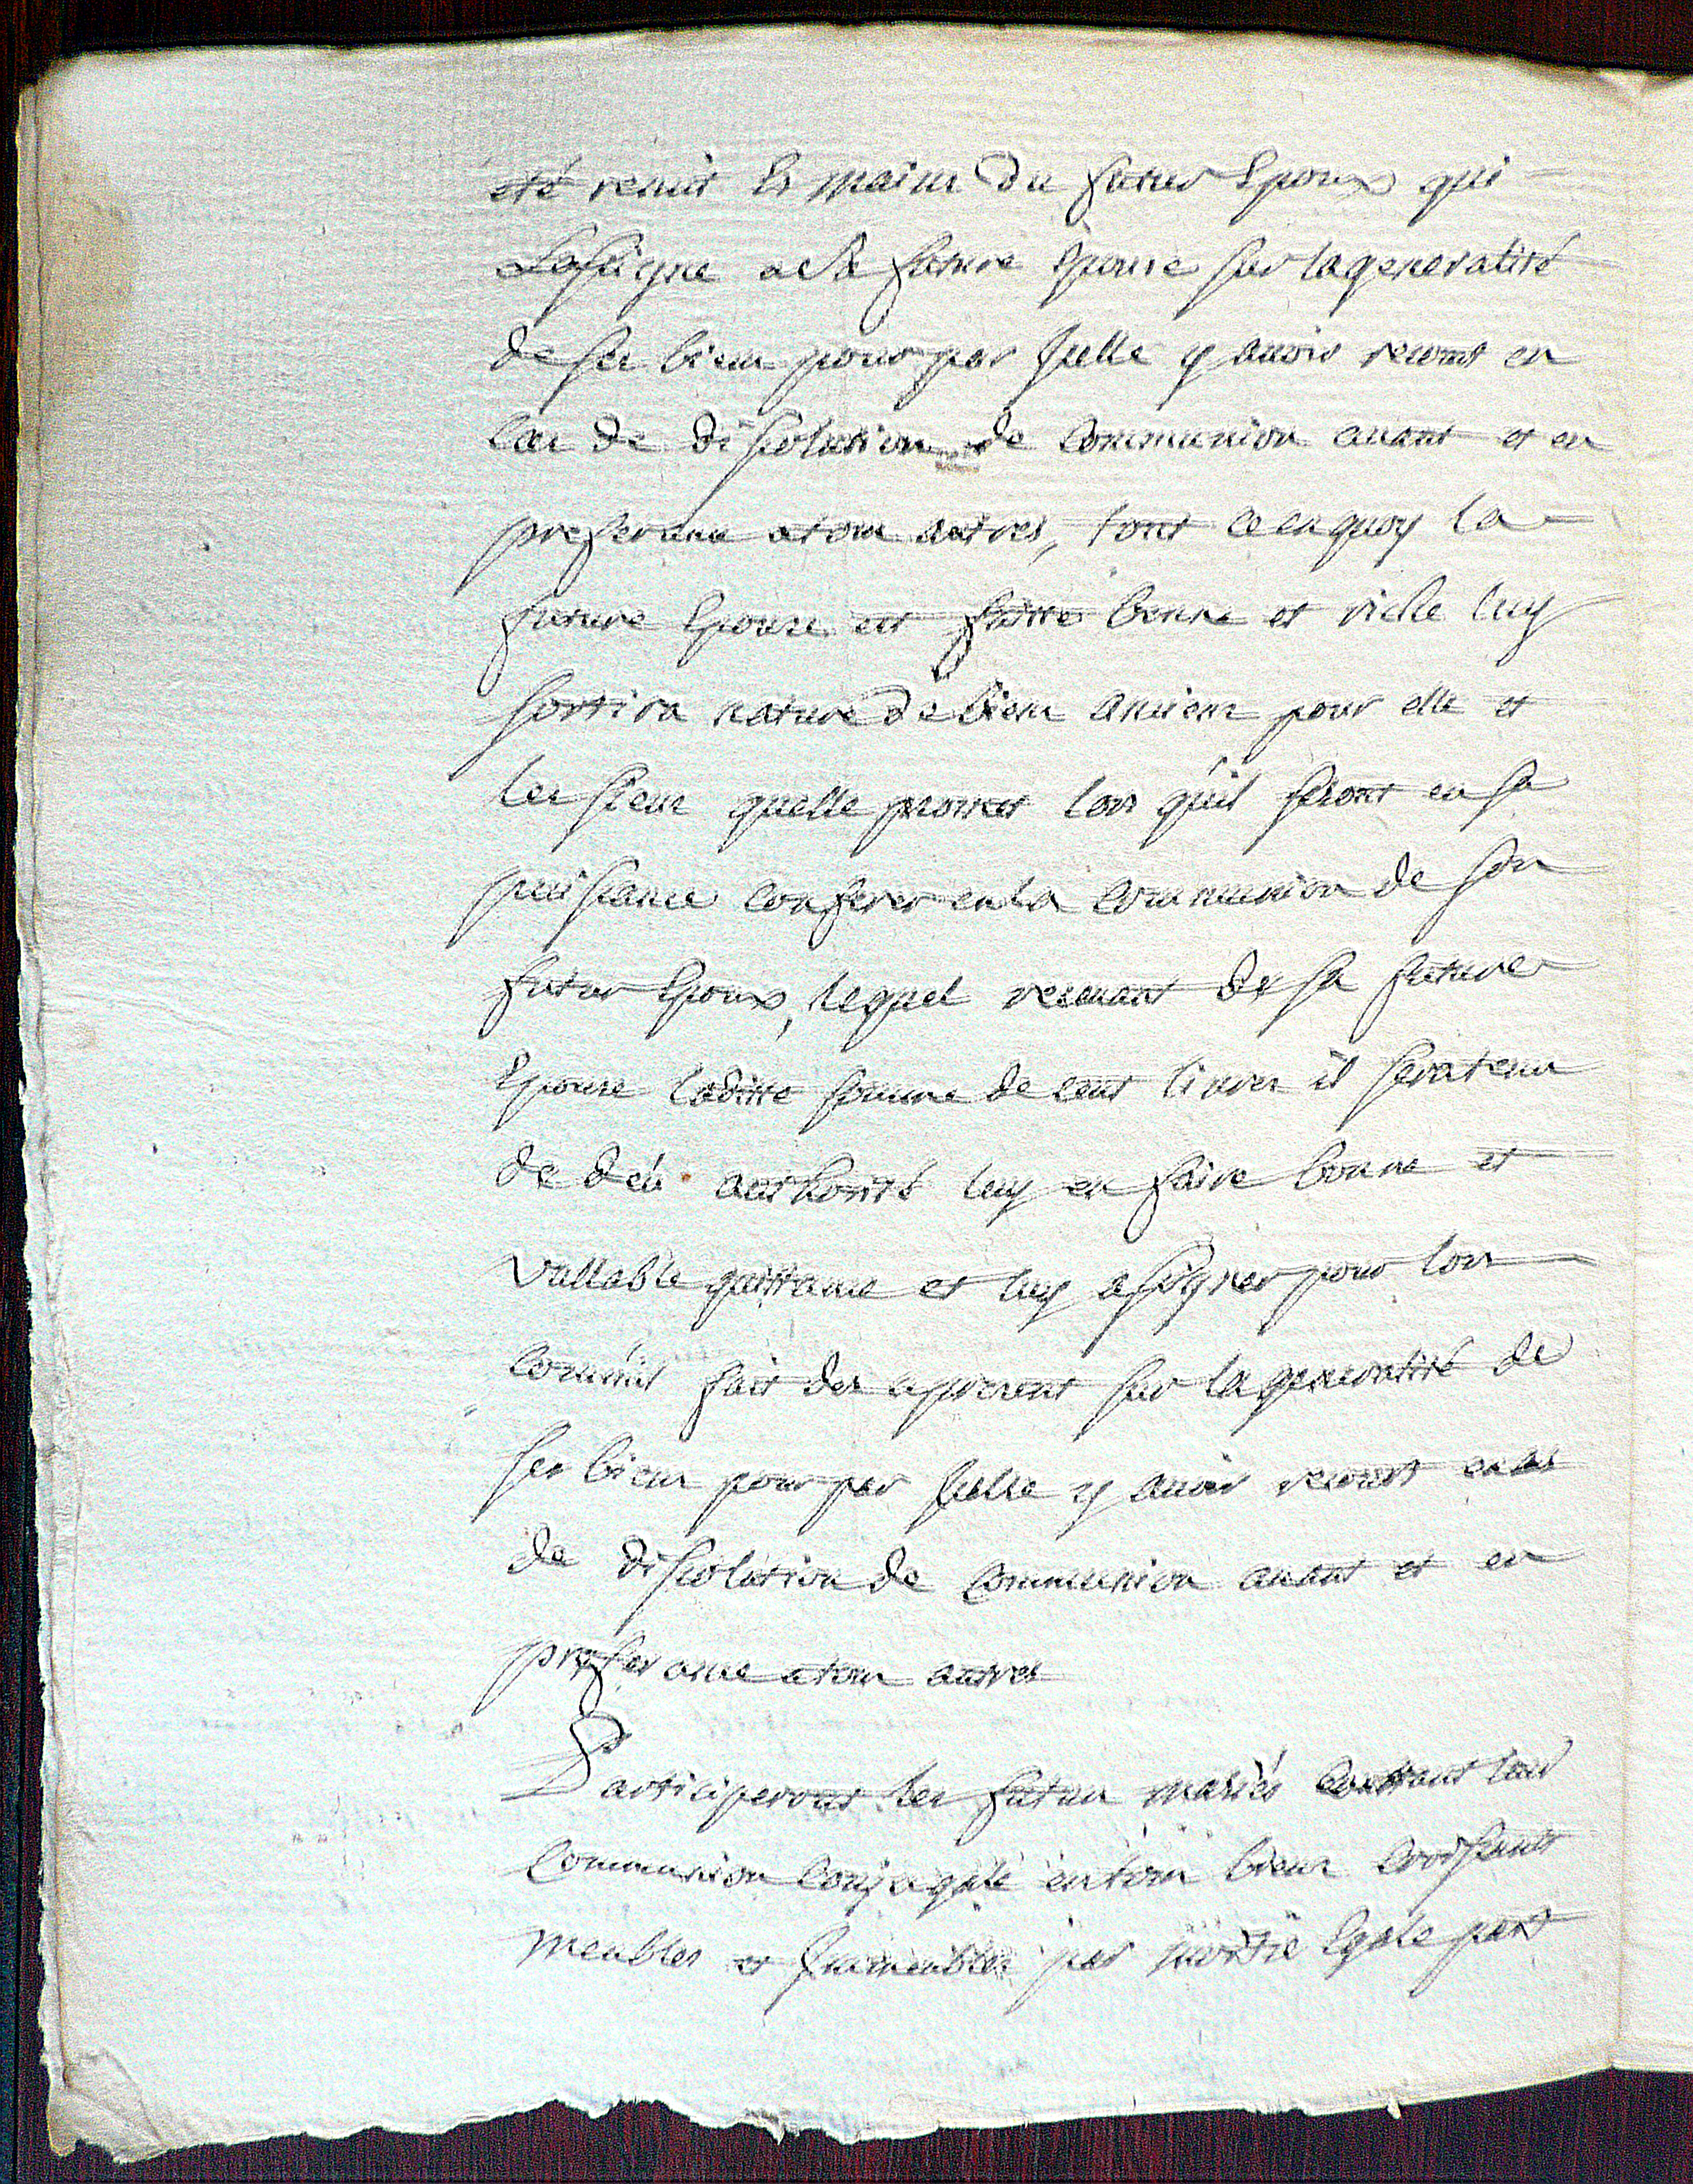 eté remis Es mains du futur Epoux qui
Lassigne a la future Epouse sur la generalité
de ses biens pour par Jcelle y auoir recours en
Cas de dissolution de Communion auant et en
preferance a tous autres, tout ce en quoy la
future Epouse est faitte bonne et riche luy
sortira nature de biens anciens pour elle et
les siens quelle promet lors qu'il seront en sa
puissance conferer en la Communion de son
futur Epoux, lequel receuant de sa future
Epouse laditte somme de cent liures il sera tenu
de deü authorité luy en faire bonne et
Vallable quittance et luy assigner pour lors
Comm'il fait des apresent sur la generalité de
ses biens pour par Jcelle y auoir recours en cas
de dissolution de Communion auant et en
preferance a tous autres
Participeront les futurs mariés Constant leur
Communion Conjugale en tous biens Croissants
meubles et Jmmeubles par moitié Egale part